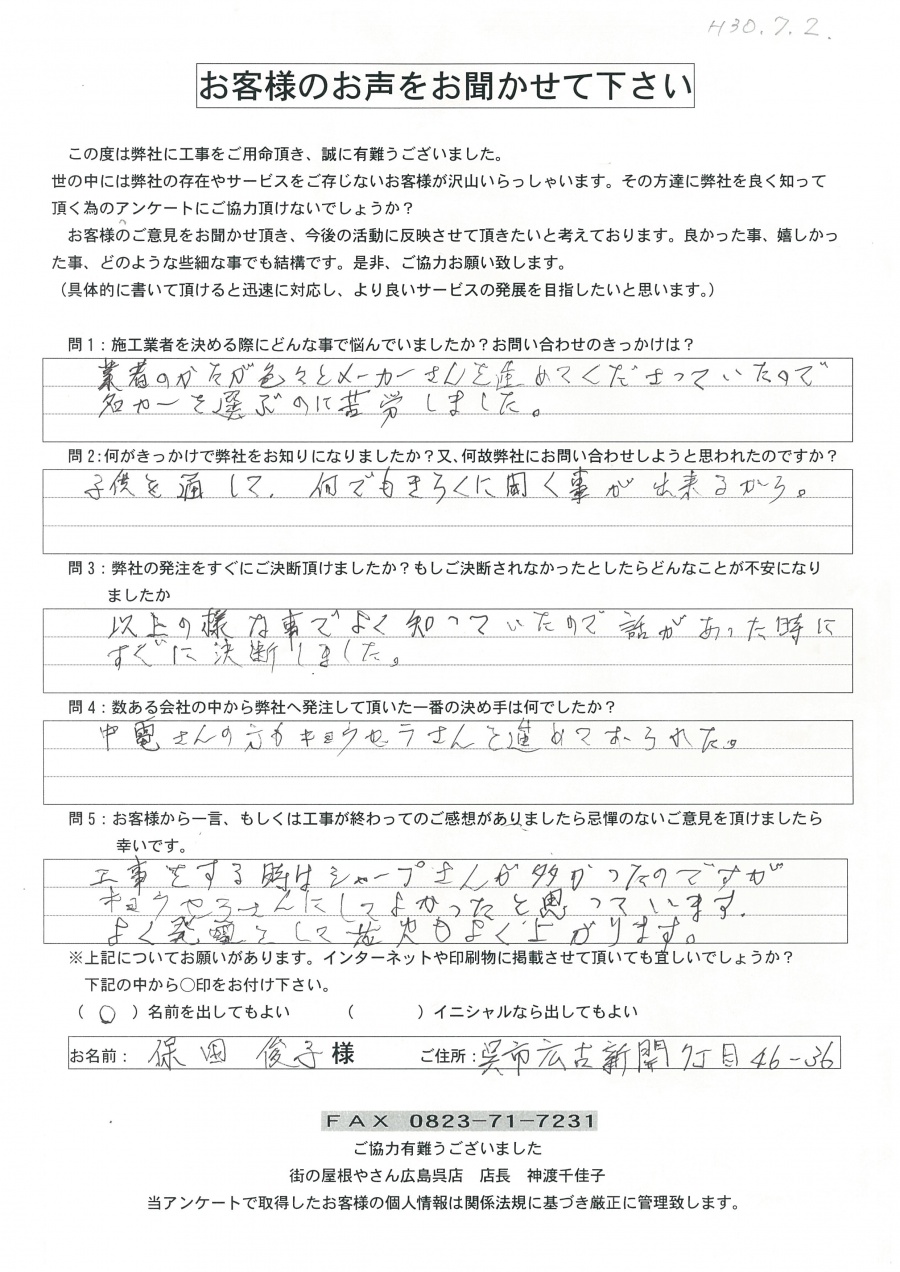 H30.7.2.
お客様のお声をお聞かせて下さい
この度は弊社に工事をご用命頂き、誠に有難うございました。
世の中には弊社の存在やサービスをご存じないお客様が沢山いらっしゃいます。その方達に弊社を良く知って
頂く為のアンケートにご協力頂けないでしょうか？
お客様のご意見をお聞かせ頂き、今後の活動に反映させて頂きたいと考えております。良かった事、嬉しかっ
た事、どのような些細な事でも結構です。是非、ご協力お願い致します。
（具体的に書いて頂けると迅速に対応し、より良いサービスの発展を目指したいと思います。）
問1：施工業者を決める際にどんな事で悩んでいましたか？お問い合わせのきっかけは？
業者のかたが色々とメーカーさんを進めてくださっていたので
名カーを選ぶのに苦労しました。
問2：何がきっかけで弊社をお知りになりましたか？又、何故弊社にお問い合わせしようと思われたのですか？
子供を通して、何でもきらくに聞く事が出来るから。
問3：弊社の発注をすぐにご決断頂けましたか？もしご決断されなかったとしたらどんなことが不安になり
ましたか
以上の様な事でよく知っていたので話があった時に
すぐに決断しました。
問4：数ある会社の中から弊社へ発注して頂いた一番の決め手は何でしたか？
中電さんの方もキョウセラさんを進めておられた。
問5：お客様から一言、もしくは工事が終わってのご感想がありましたら忌憚のないご意見を頂けましたら
幸いです。
工事をする時はシャープさんが多かったのですが
キョウセラさんにしてよかったと思っています.
よく発電をして もよく上がります。
※上記についてお願いがあります。インターネットや印刷物に掲載させて頂いても宜しいでしょうか？
下記の中から○印をお付け下さい。
（○）名前を出してもよい （ ）イニシャルなら出してもよい
お名前： 保田 俊子 様 ご住所：呉市広古新開7丁目46-36
FAX 0823-71-7231
ご協力有難うございました
街の屋根やさん広島呉店 店長 神渡千佳子
当アンケートで取得したお客様の個人情報は関係法規に基づき厳正に管理致します。